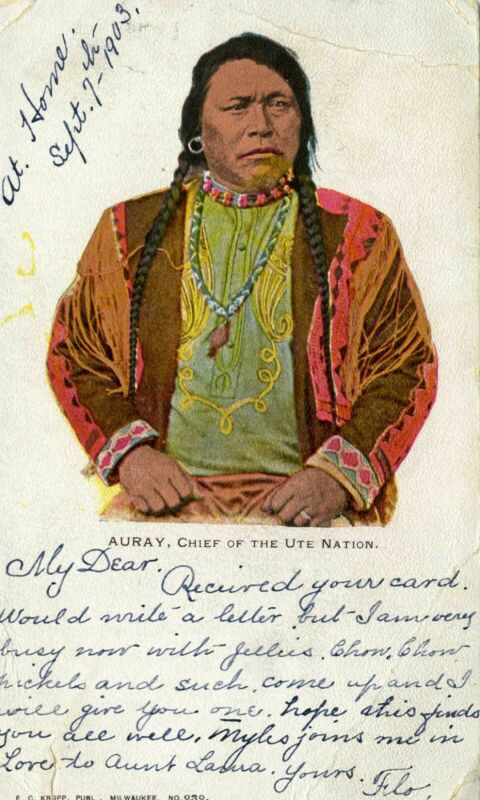 At. Home.
Sept. 7th-1903.
AURAY, CHIEF OF THE UTE NATION.
My Dear.
Received your card.
Would write a letter but I am very
busy now with Jellies, Chow, Chow
pickels and such, come up and I
will give you one. hope this finds
you all well. Myles joins me in
Love to Aunt Laura. yours. Flo.
E. C. KROPP, PUBL., MILWAUKEE. NO.